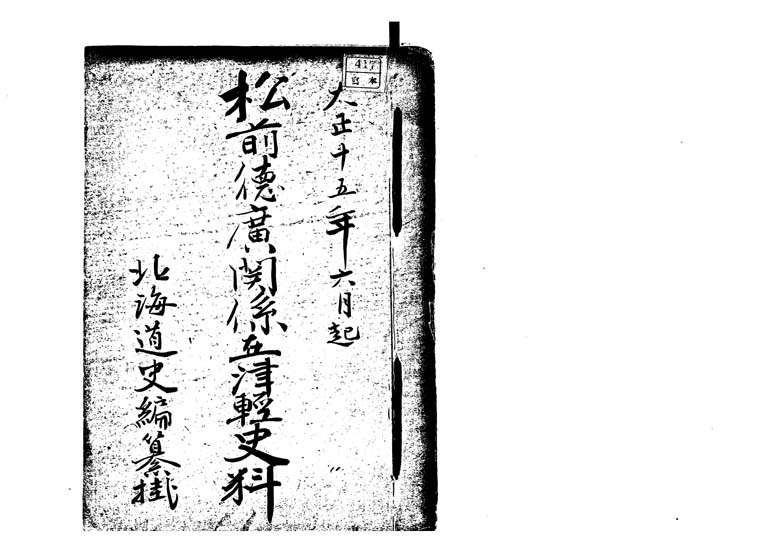 417
大正十五年六月起
松前德廣関係在津輕史料
北海道史編纂掛